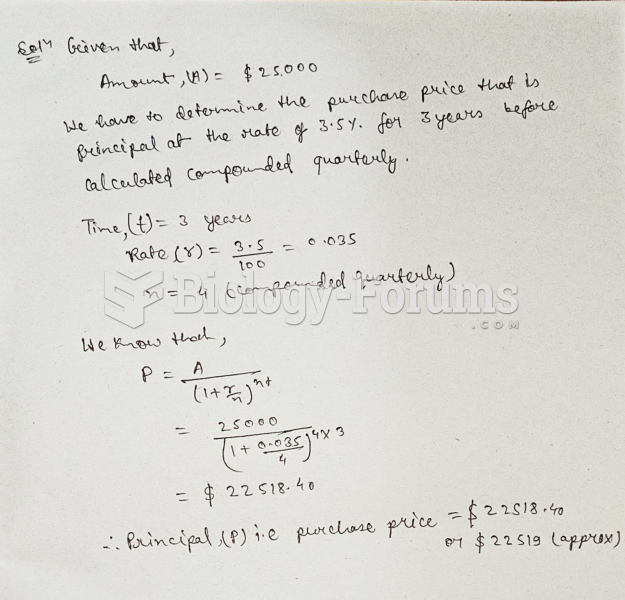 Solⁿ Given that,
Amount, (A) = $25.000
We have to determine the purchase price that is
principal at the rate of 3.5%. for 3 years before
calculated compounded quarterly.
Time, (t) = 3 years
Rate (r) = 3.5/100 = 0.035
n = 4 (compounded quarterly)
Biology-Forums
.COM
We know that,
P = A/(1+r/n)^nt
= 25000/(1+0.035/4)^4×3
= $ 22518.40
∴ Principal, (P) i.e purchase price = $22518.40
or $22519 (approx)